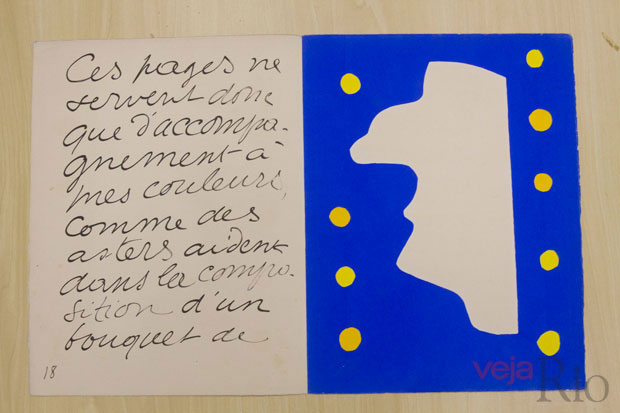 Ces pages ne
servent donc
que d'accompa-
gnement à
mes couleurs,
comme des
asters aident
dans la compo-
sition d'un
bouquet de
18
veja
Rio